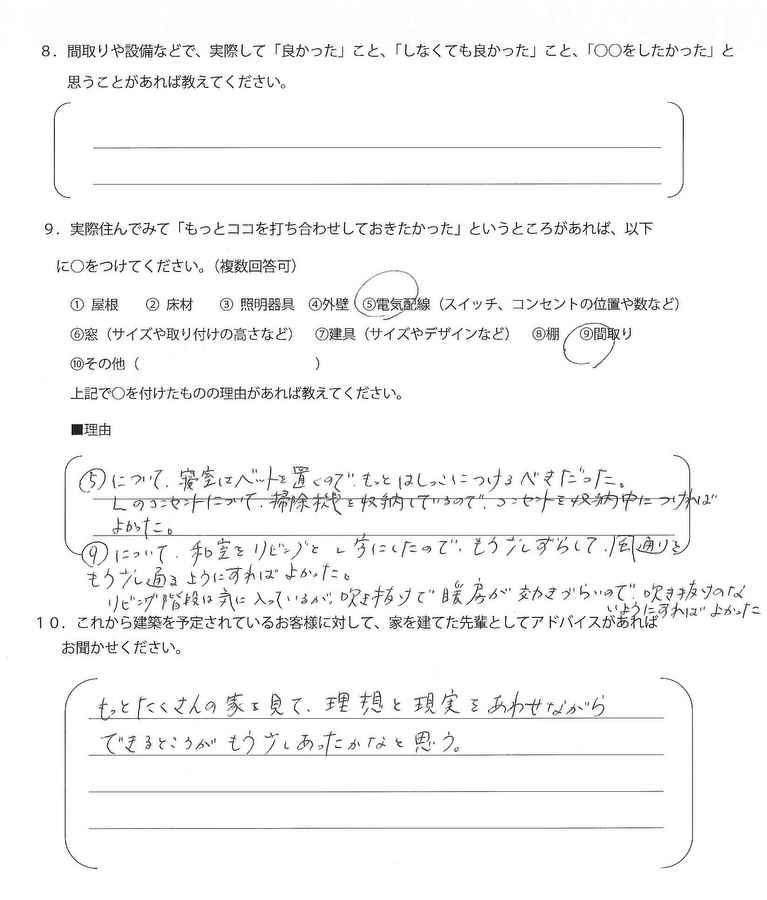 8．間取りや設備などで、実際して「良かった」こと、「しなくても良かった」こと、「〇〇をしたかった」と
思うことがあれば教えてください。
9．実際住んでみて「もっとココを打ち合わせしておきたかった」というところがあれば、以下
に〇をつけてください。（複数回答可）
① 屋根　② 床材　③ 照明器具　④外壁　⑤電気配線（スイッチ、コンセントの位置や数など）
⑥窓（サイズや取り付けの高さなど）　⑦建具（サイズやデザインなど）　⑧棚　⑨間取り
⑩その他（　　　　　　　　　　　　）
上記で〇を付けたものの理由があれば教えてください。
■理由
⑤について、寝室はベットを置くので、もっとはしっこにつけるべきだった。
Lのコンセントについて、掃除機を収納しているので、コンセントを収納中につければ
よかった。
⑨について、和室をリビングとL字にしたので、もう少しずらして、風通りを
もう少し通るようにすればよかった。
リビング階段は気に入っているが、吹き抜けで暖房が効きづらいので、吹き抜けのな
いようにすればよかった
10．これから建築を予定されているお客様に対して、家を建てた先輩としてアドバイスがあれば
お聞かせください。
もっとたくさんの家を見て、理想と現実をあわせながら
できるところがもう少しあったかなと思う。